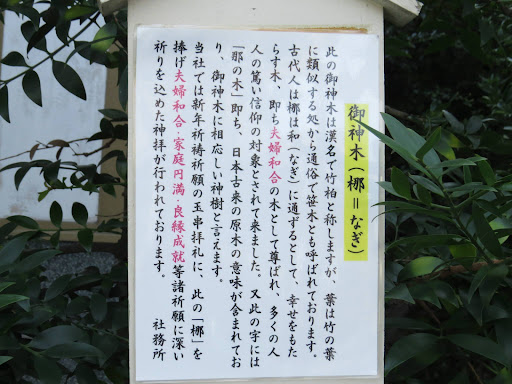 御神木(梛=なぎ)
此の御神木は漢名で竹柏と称しますが、葉は竹の葉
に類似する処から通俗で笹木とも呼ばれております。
古代人は梛は和(なぎ)に通ずるとして、幸せをもた
らす木、即ち夫婦和合の木として尊ばれ、多くの人
人の篤い信仰の対象とされて来ました。又此の字には
「那の木」即ち、日本古来の原木の意味が含まれてお
り、御神木に相応しい神樹と言えます。
当社では新年祈祷祈願の玉串拝礼に、此の「梛」を
捧げ夫婦和合・家庭円満・良縁成就等諸祈願に深い
祈りを込めた神拝が行われております。
社務所